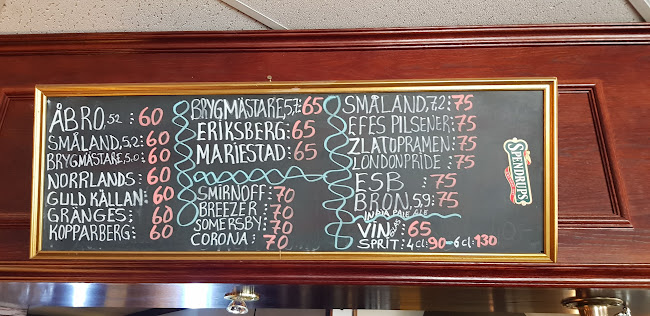 ÅBRO, 5.2 : 60
SMÅLAND, 5,2 : 60
BRYGMÄSTARE, 5,0 : 60
NORRLANDS : 60
GULD KÄLLAN : 60
GRÄNGES : 60
KOPPARBERG : 60
BRYGMÄSTARE, 5,7 : 65
ERIKSBERG : 65
MARIESTAD : 65
SMIRNOFF : 70
BREEZER : 70
SOMERSBY : 70
CORONA : 70
SMÅLAND, 7,2 : 75
EFES PILSENER : 75
ZLATOPRAMEN : 75
LONDON PRIDE : 75
ESB : 75
BRON, 5,9 : 75
INDIA PALE ALE
VIN : 65
SPRIT : 4 cl : 90 - 6 cl : 130
SPENDRUPS